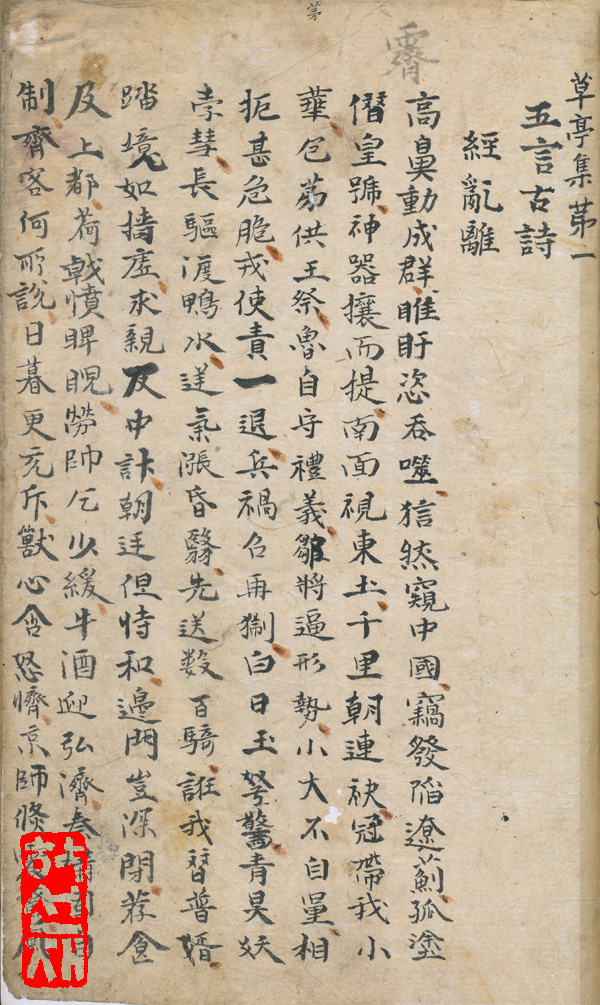 草亭集第一
五言古詩
經亂離
高鼻動成群睢盱恣吞噬猘然窺中國竊發陷遼薊孤塗
僭皇號神器攘而提南面視東土千里朝連袂冠帶我小
華包茅供王祭魯自守禮義雛將逼形勢小大不自量相
扼甚危脆戎使責一退兵禍仍再猘白日玉弩驚青昊妖
祟彗長驅渡鴨水送氣漲昏翳先送數百騎誑我替普婿
踏境如擣虛求親反中計朝廷但恃和邊門豈深閉荐食
及上都荷戟憤睥睨勞師乞少緩牛酒迎弘濟
制齊客何所說日暮更充斥獸心含怒懠京師倏
霽
茅